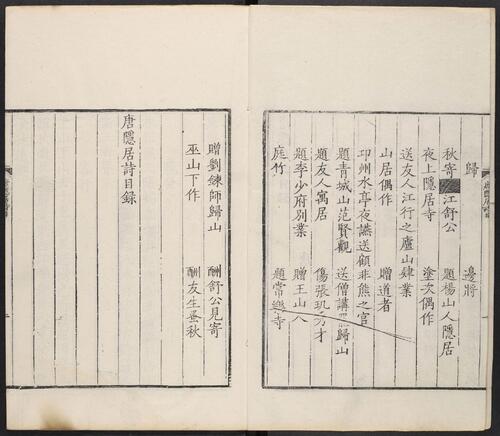 歸 邊將
秋寄 江舒公 題楊山人隱居
夜上隱居寺 塗次偶作
送友人江行之廬山肄業
山居偶作 贈道者
卭州水亭夜讌送顧非熊之官
題青城山范賢觀 送僧講 歸山
題友人寓居 傷張玖秀才
題李少府別業 贈王山人
庭竹 題常樂寺
贈劉鍊師歸山 酬舒公見寄
巫山下作 酬友生蚤秋
唐隱居詩目錄